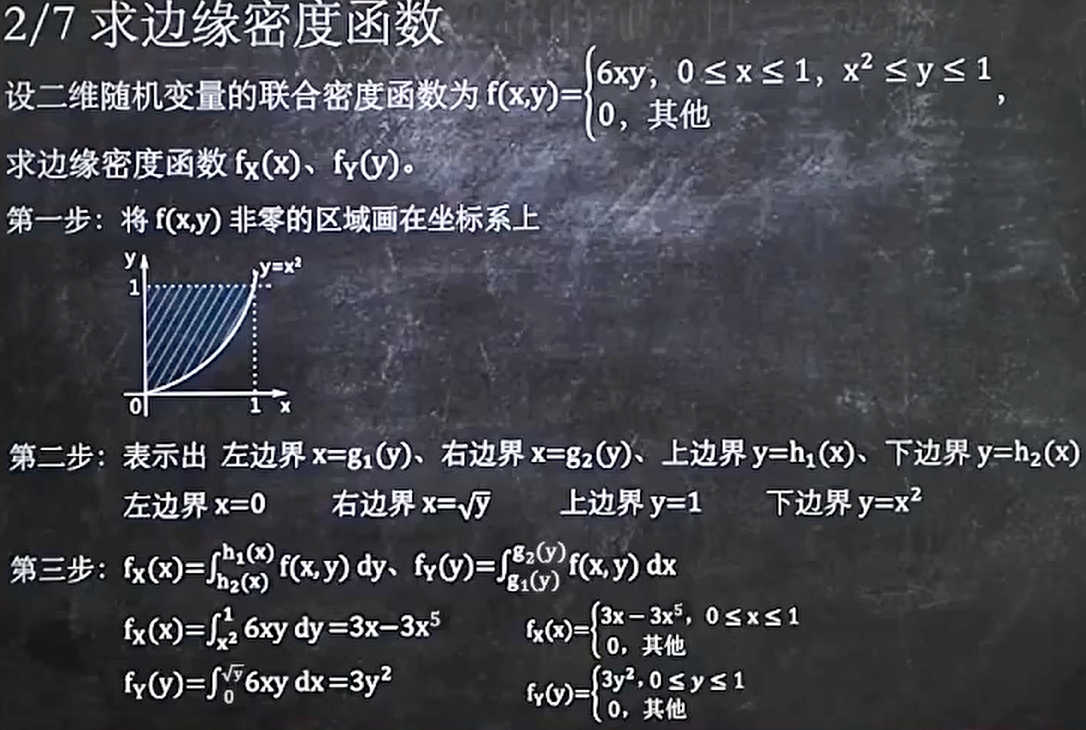 2/7 求边缘密度函数
设二维随机变量的联合密度函数为 f(x,y)={6xy, 0≤x≤1, x²≤y≤1
0, 其他 ,
求边缘密度函数 fX(x)、fY(y)。
第一步：将 f(x,y) 非零的区域画在坐标系上
y
y=x²
1
0 1 x
第二步：表示出 左边界 x=g₁(y)、右边界 x=g₂(y)、上边界 y=h₁(x)、下边界 y=h₂(x)
左边界 x=0 右边界 x=√y 上边界 y=1 下边界 y=x²
第三步：fX(x)=∫h₂(x)^h₁(x) f(x,y) dy、fY(y)=∫g₁(y)^g₂(y) f(x,y) dx
fX(x)=∫x²^1 6xy dy=3x−3x⁵ fX(x)={3x−3x⁵, 0≤x≤1
0, 其他
fY(y)=∫0^√y 6xy dx=3y² fY(y)={3y², 0≤y≤1
0, 其他